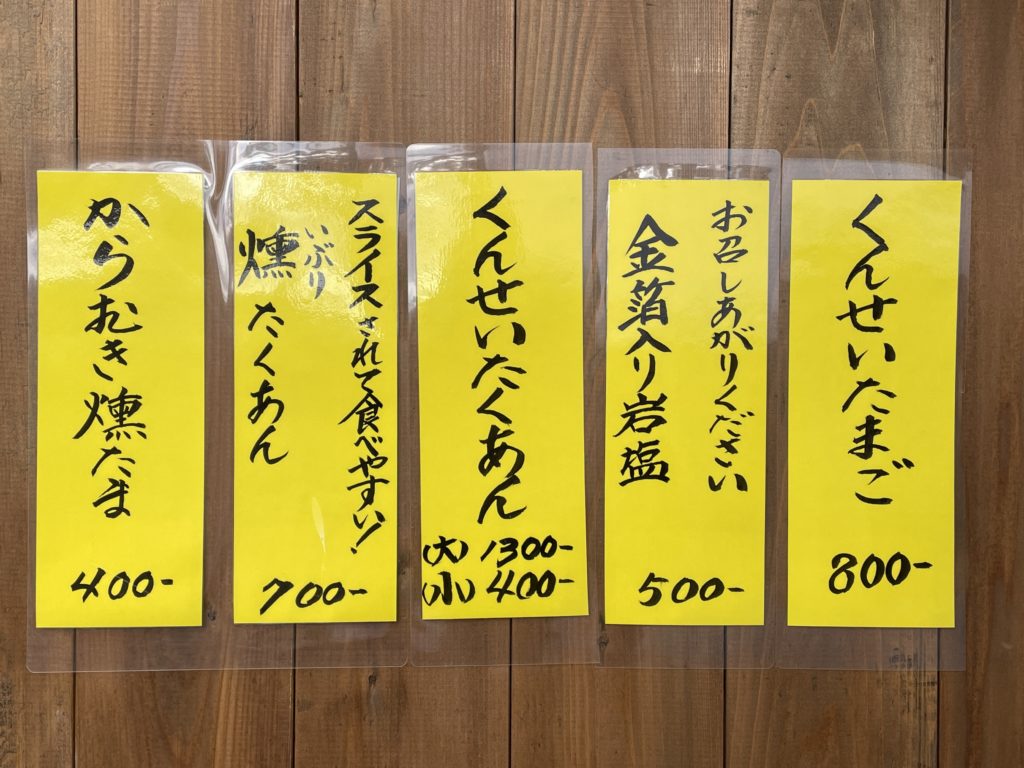 くんせいたまご
800-
お召しあがりください
金箔入り岩塩
500-
くんせいたくあん
(大) 1300-
(小) 400-
スライスされて食べやすい!
いぶり
燻たくあん
700-
からむき燻たま
400-